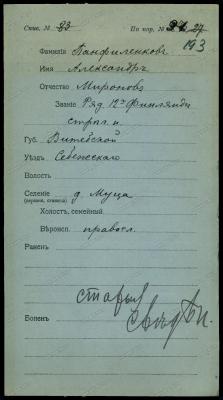 Спис. № 93 По пор. № 27
193
Фамилія Панфиленковъ
Имя Александръ
Отчество Мироновъ
Званіе Ряд. 12го Финляндс.
стрѣл. п.
Губ. Витебской
Уѣздъ Себежскаго
Волость
Селеніе д. Муца
(деревня, станица)
Холостъ, семейный
Вѣроисп. правосл.
Раненъ
Боленъ
старый